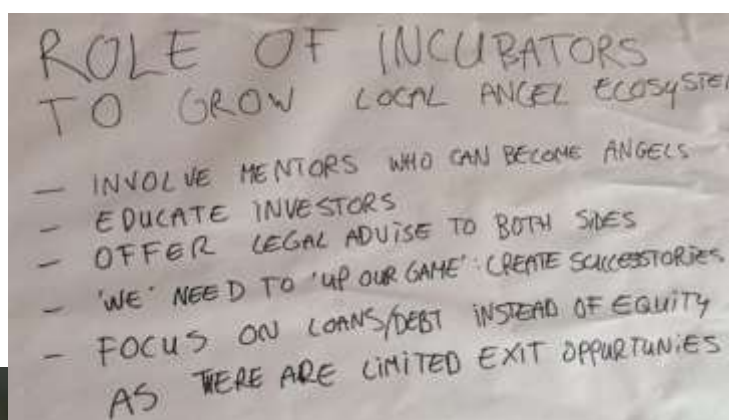 ROLE OF INCUBATORS
TO GROW LOCAL ANGEL ECOSYSTE
— INVOLVE MENTORS WHO CAN BECOME ANGELS
— EDUCATE INVESTORS
— OFFER LEGAL ADVISE TO BOTH SIDES
— 'WE' NEED TO 'UP OUR GAME': CREATE SUCCESSTORIES
— FOCUS ON LOANS/DEBT INSTEAD OF EQUITY
AS THERE ARE LIMITED EXIT OPPURTUNIES